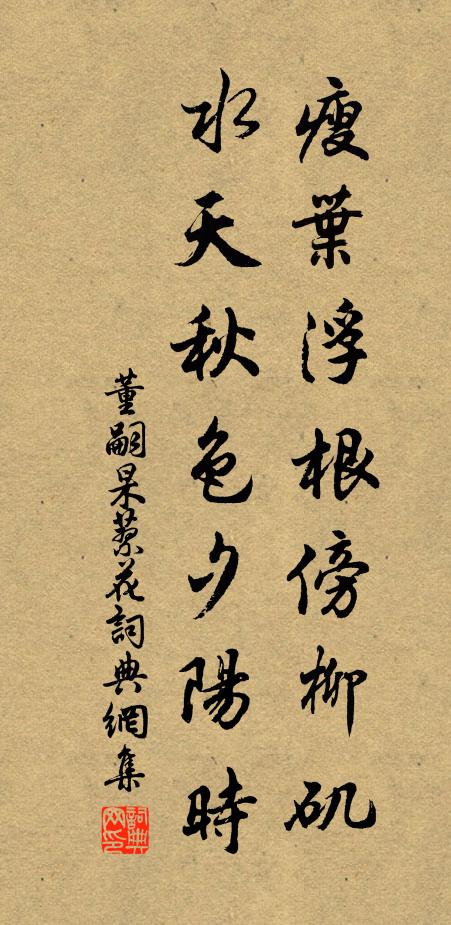 瘦葉浮根傍柳矶
水天秋色夕陽時
董嗣杲蓼花詞典網集
詞典网印